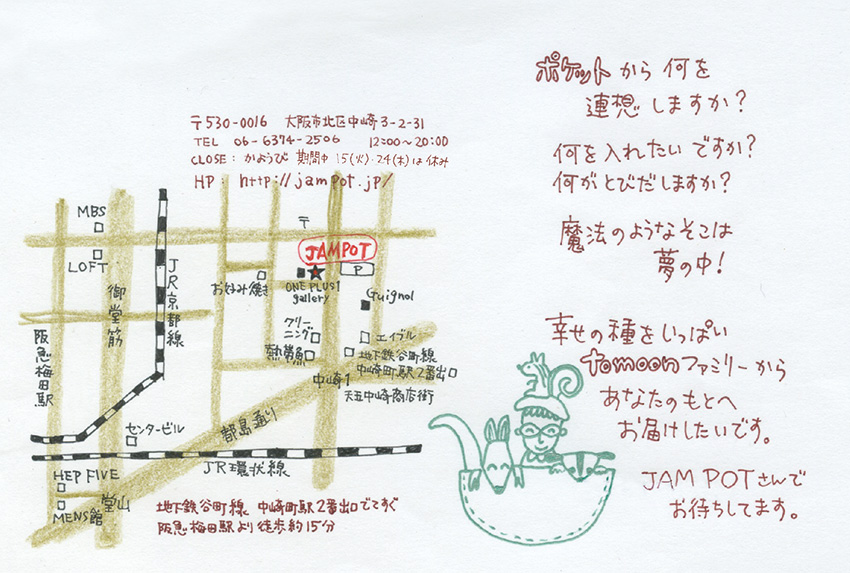 〒530-0016 大阪市北区中崎3-2-31
TEL 06-6374-2506 12:00〜20:00
CLOSE: かようび 期間中 15(火)・24(木)は休み
HP: http://jampot.jp/
MBS
LOFT
御堂筋
JR京都線
阪急梅田駅
〒
JAMPOT
お好み焼き
ONE PLUS 1
gallery
P
Guignol
クリー
ニング
エイブル
熱帯魚
地下鉄谷町線
中崎町駅2番出口
中崎1
天五中崎商店街
都島通り
センタービル
JR環状線
HEP FIVE
MENS館
堂山
地下鉄谷町線 中崎町駅2番出口でてすぐ
阪急梅田駅より徒歩約15分
ポケットから何を
連想しますか?
何を入れたいですか?
何がとびだしますか?
魔法のようなそこは
夢の中!
幸せの種をいっぱい
tomoonファミリーから
あなたのもとへ
お届けしたいです。
JAM POTさんで
お待ちしてます。